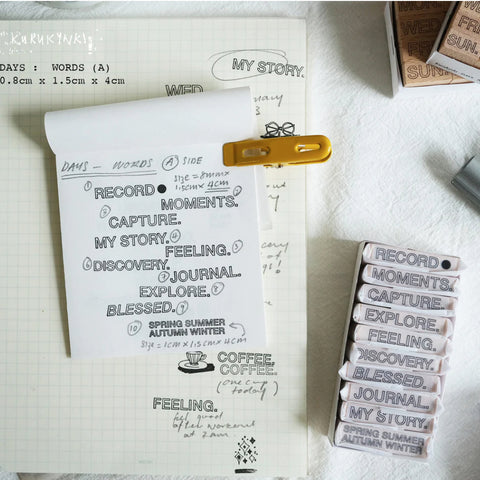 KURUKYNKI
DAYS : WORDS (A)
0.8cm x 1.5cm x 4cm
MY STORY.
WED
DAYS - WORDS (A) SIDE
size = 8mm x
1.5cm x 4cm
① RECORD ●
MOMENTS. ②
CAPTURE. ③
MY STORY. ④
FEELING. ⑤
⑥ DISCOVERY.
⑦ JOURNAL.
EXPLORE. ⑧
BLESSED. ⑨
⑩ SPRING SUMMER
AUTUMN WINTER
size = 1cm x 1.5cm x 4cm
COFFEE.
COFFEE.
(one cup
today)
FEELING.
feel good
after workout
at 7am
WED
FRI
SUN.
RECORD ●
MOMENTS.
CAPTURE.
EXPLORE.
FEELING.
DISCOVERY.
BLESSED.
JOURNAL.
MY STORY.
SPRING SUMMER
AUTUMN WINTER